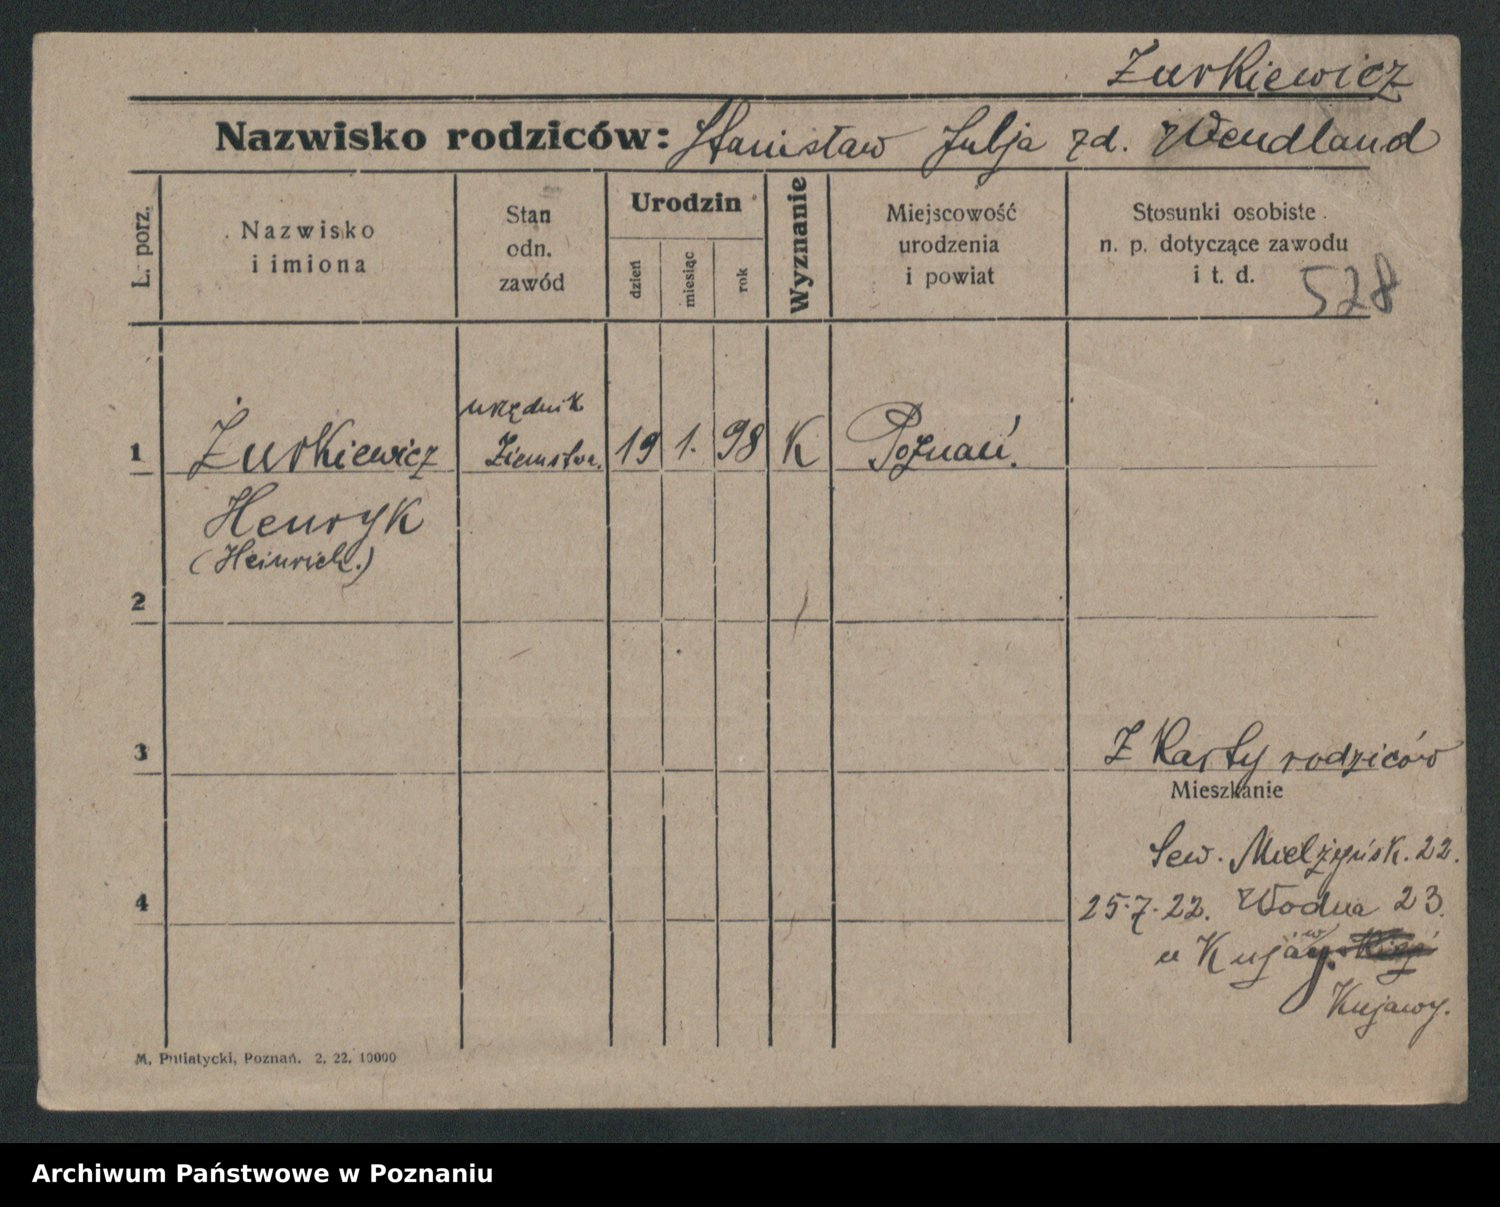 Żurkiewicz
Nazwisko rodziców: Stanisław Julja zd. Wendland
L. porz.
Nazwisko
i imiona
Stan
odn.
zawód
Urodzin
dzień
miesiąc
rok
Wyznanie
Miejscowość
urodzenia
i powiat
Stosunki osobiste
n. p. dotyczące zawodu
i t. d.
528
urzędnik
1 Żurkiewicz Ziemstw. 19 1. 98 K Poznań.
Henryk
(Heinrich.)
2
3 Z Karty rodziców
Mieszkanie
Sew. Mielżyńsk. 22.
4 25.7.22. Wodna 23.
u Kujawy.
Kujawy.
M. Putiatycki, Poznań. 2, 22, 10000
Archiwum Państwowe w Poznaniu